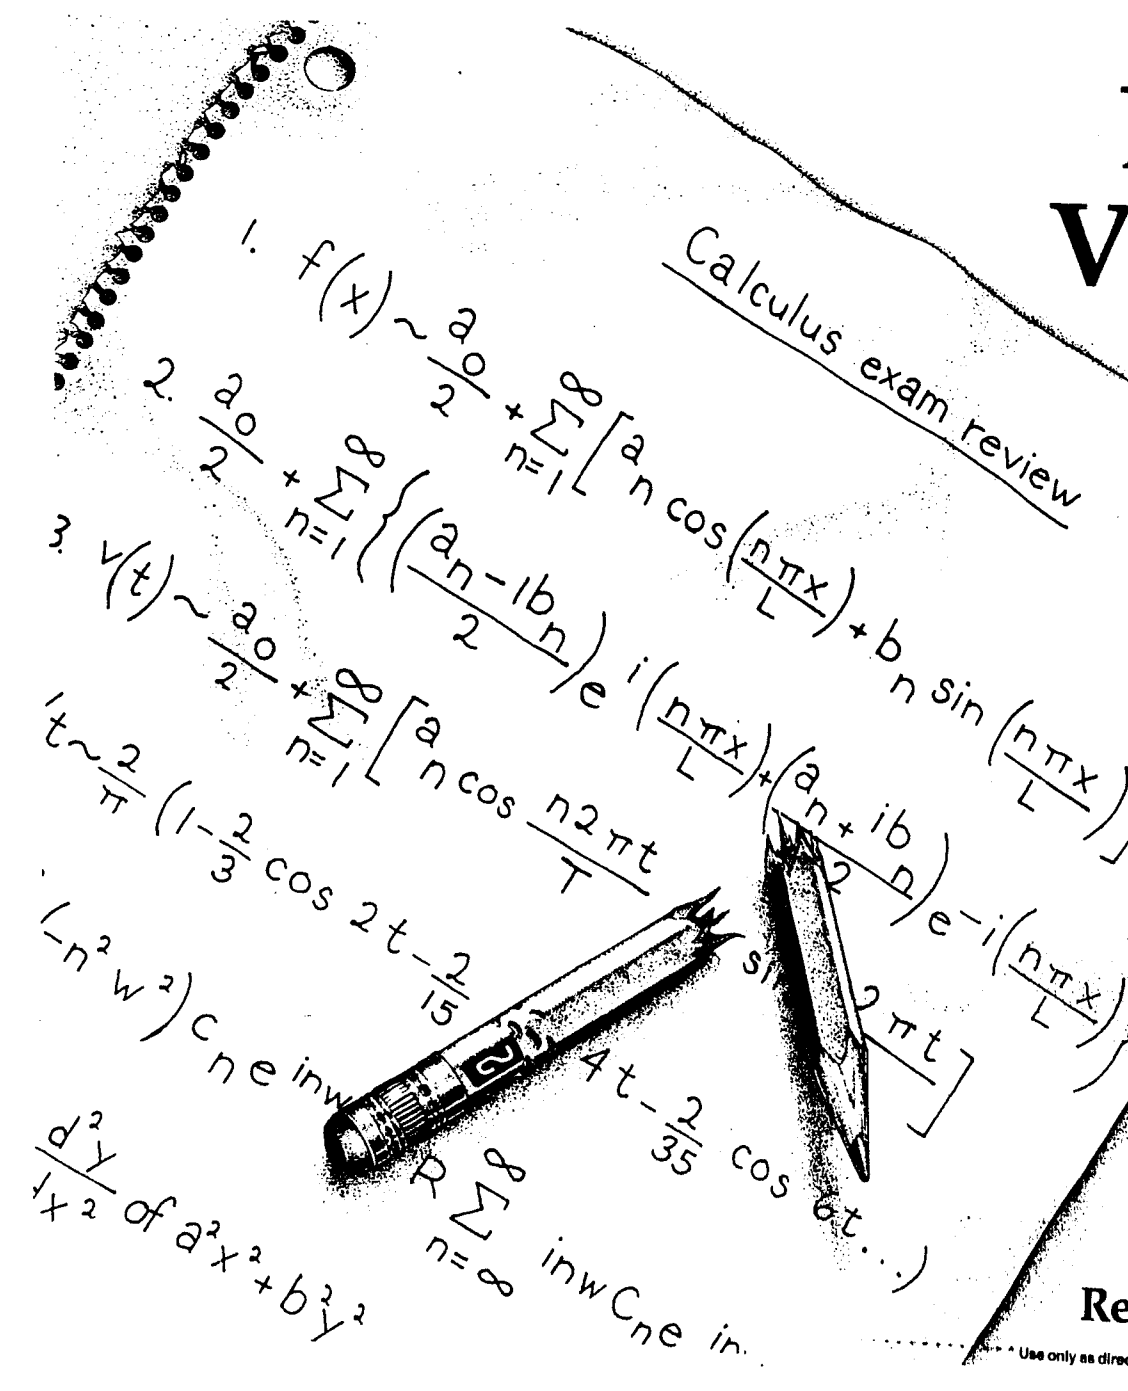 Calculus exam review
1. f(x) ~ a₀/2 + ∑ₙ₌₁^∞ [aₙ cos(nπx/L) + bₙ sin(nπx/L)]
2. a₀/2 + ∑ₙ₌₁^∞ {((aₙ - ibₙ)/2) e^i(nπx/L) + ((aₙ + ibₙ)/2) e^-i(nπx/L)}
3. v(t) ~ a₀/2 + ∑ₙ₌₁^∞ [aₙ cos n2πt/T si 2πt]
t ~ 2/π (1 - 2/3 cos 2t - 2/15 4t - 2/35 cos 6t...)
(-n²w²) Cₙe inw R ∑ₙ₌∞^∞ inw Cₙe in
d²y/dx² of a²x² + b²y²
2
V
Re
Use only as direc